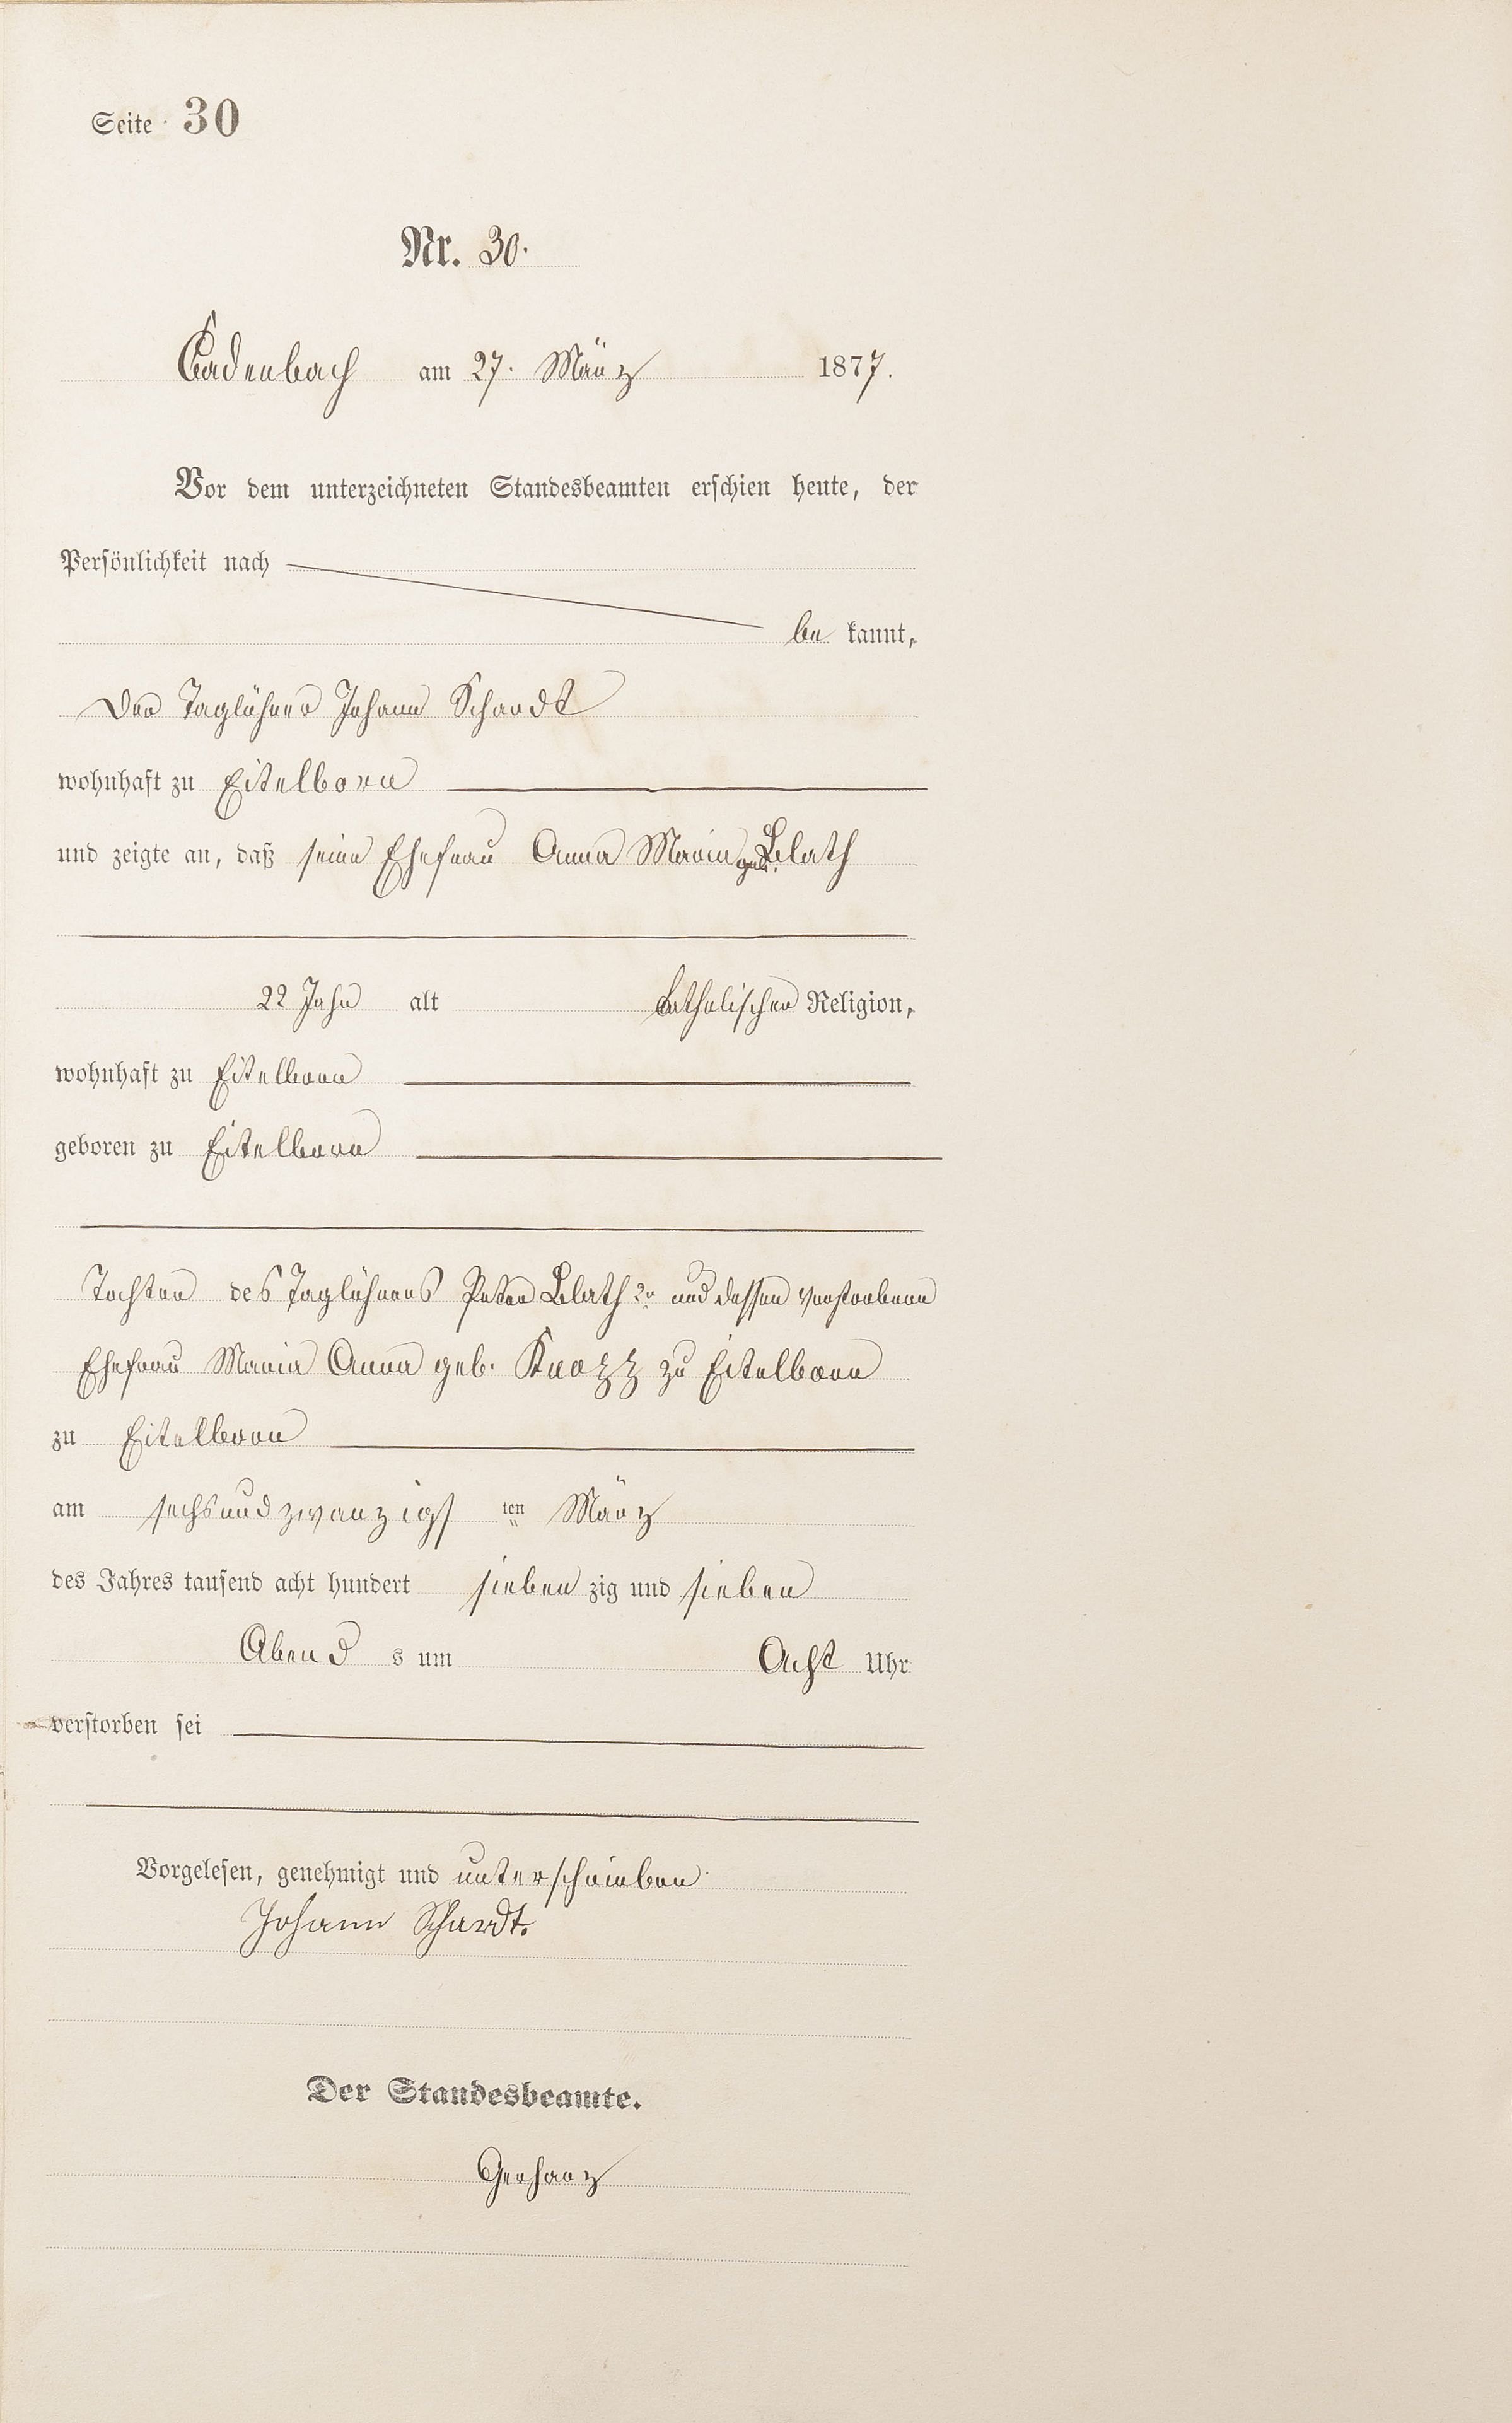 Seite 30
Nr. 30.
Cadenbach am 27. März 1877.
Vor dem unterzeichneten Standesbeamten erschien heute, der
Persönlichkeit nach
be kannt,
Der Taglöhner Johann Schardt
wohnhaft zu Eitelborn
und zeigte an, daß seine Ehefrau Anna Maria geb. Blath
22 Jahr alt katholischer Religion,
wohnhaft zu Eitelborn
geboren zu Eitelborn
Tochter des Taglöhners Peter Blath 2r und dessen verstorbene
Ehefrau Maria Anna geb. Knopp zu Eitelborn
zu Eitelborn
am sechsundzwanzigs ten März
des Jahres tausend acht hundert sieben zig und sieben
Abend s um Acht Uhr
verstorben sei
Vorgelesen, genehmigt und unterschrieben
Johann Schardt.
Der Standesbeamte.
Gerharz